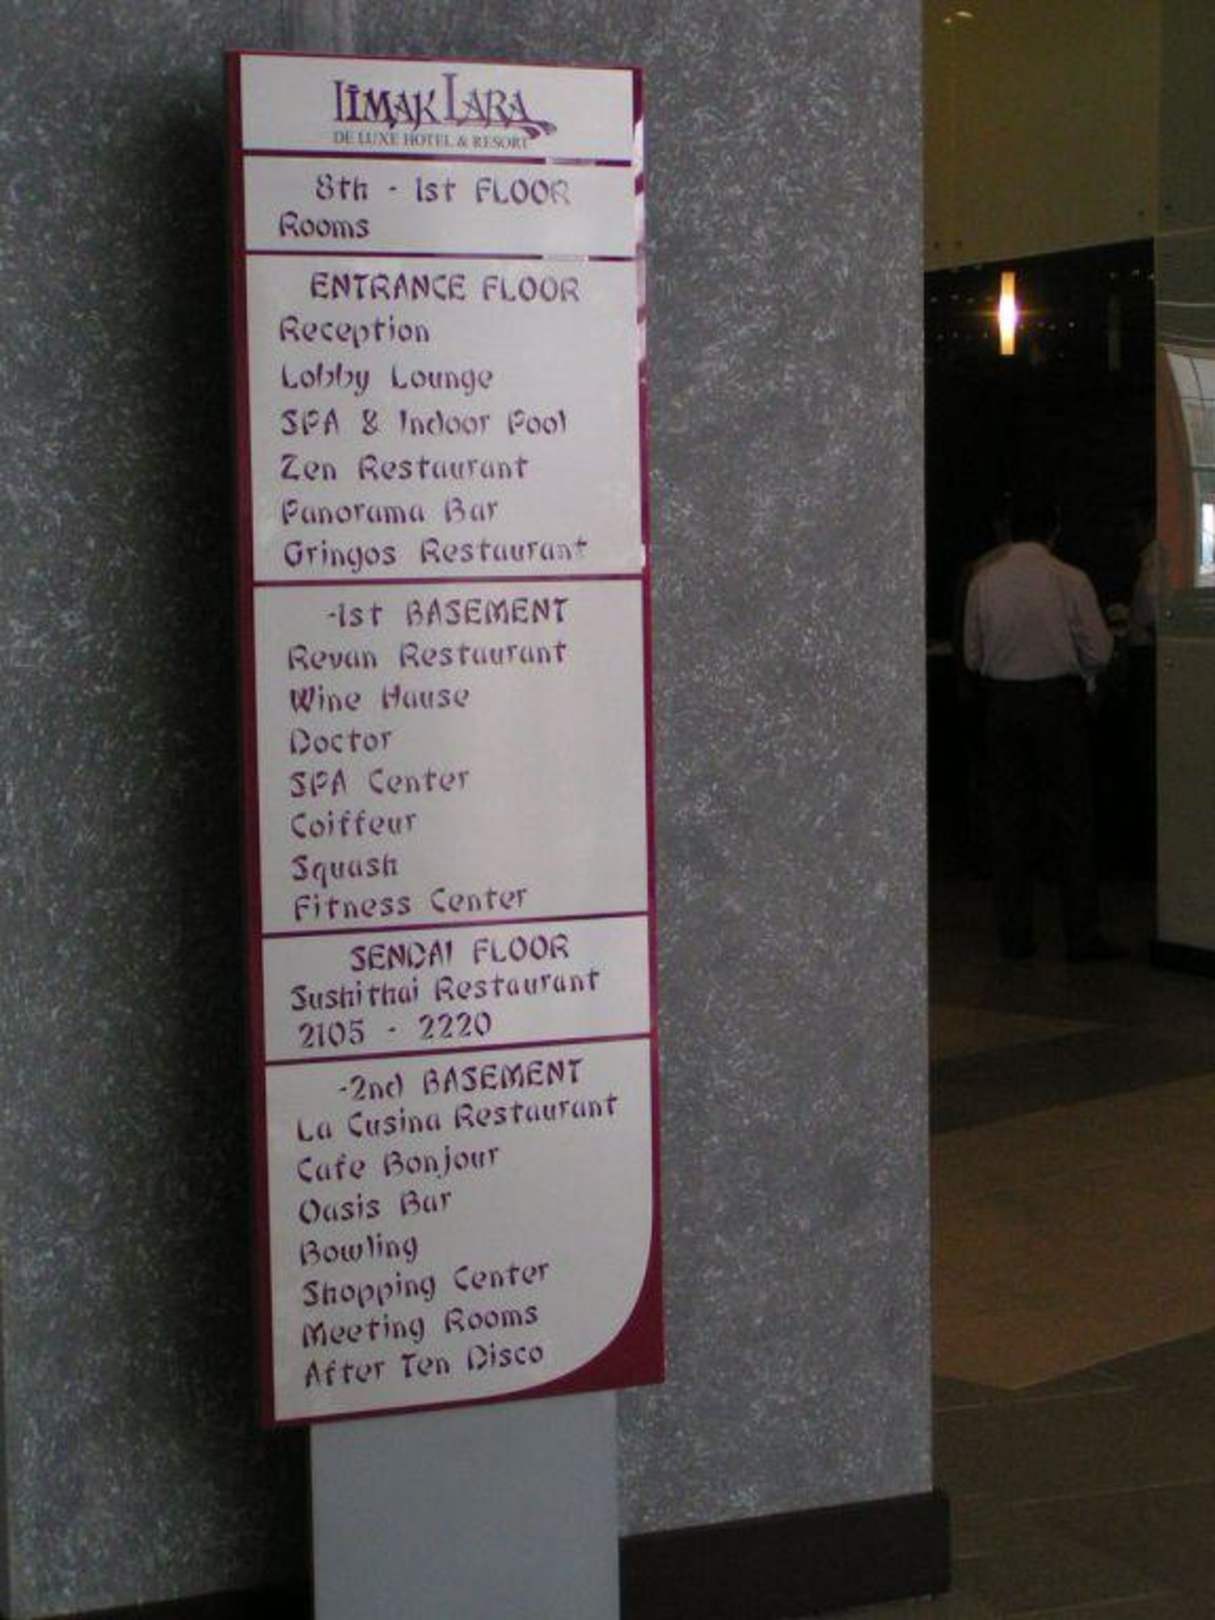 LIMAK LARA
DE LUXE HOTEL & RESORT
8th - 1st FLOOR
Rooms
ENTRANCE FLOOR
Reception
Lobby Lounge
SPA & Indoor Pool
Zen Restaurant
Panorama Bar
Gringos Restaurant
-1st BASEMENT
Revan Restaurant
Wine Hause
Doctor
SPA Center
Coiffeur
Squash
Fitness Center
SENDAI FLOOR
Sushithai Restaurant
2105 - 2220
-2nd BASEMENT
La Cusina Restaurant
Cafe Bonjour
Oasis Bar
Bowling
Shopping Center
Meeting Rooms
After Ten Disco